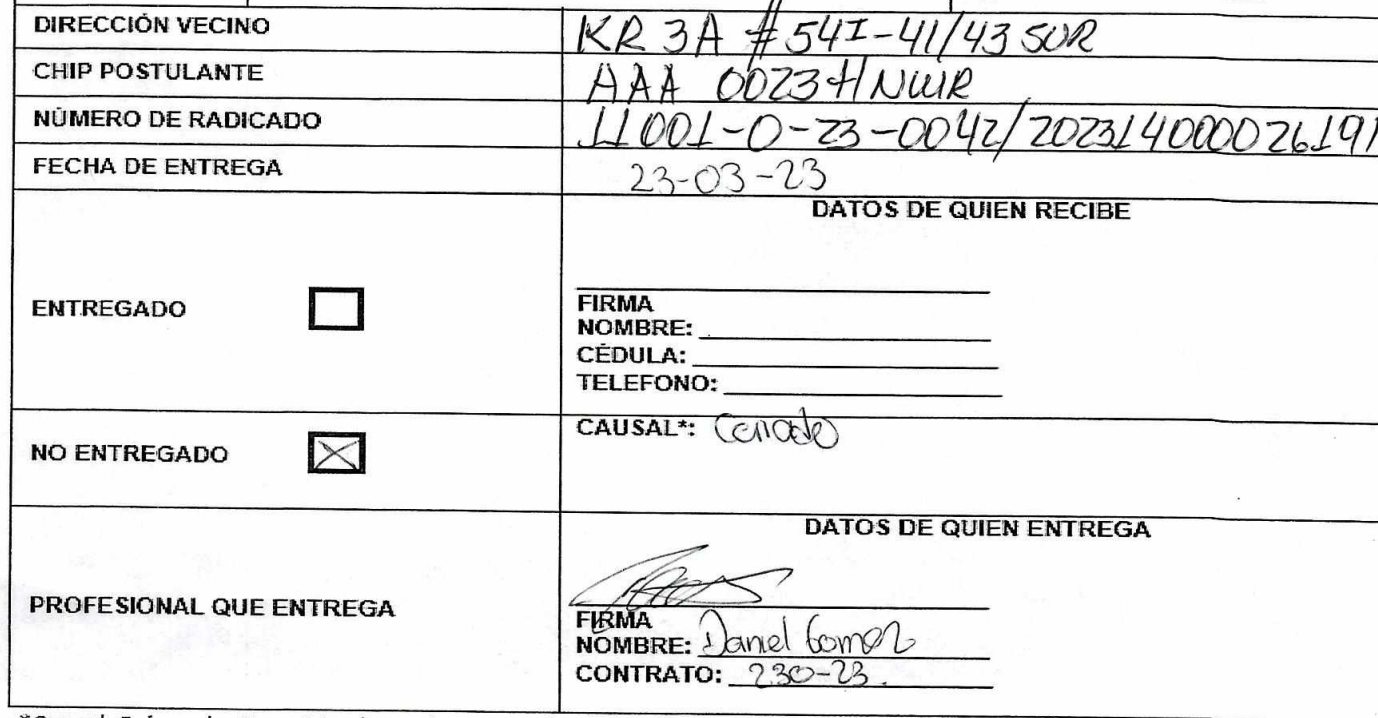 DIRECCIÓN VECINO KR 3A # 54I-41/43 SUR
CHIP POSTULANTE AAA 0023HNWR
NÚMERO DE RADICADO 11001-0-23-0042/202314000026191
FECHA DE ENTREGA 23-03-23
DATOS DE QUIEN RECIBE
ENTREGADO
FIRMA
NOMBRE:
CÉDULA:
TELEFONO:
NO ENTREGADO
CAUSAL*: Cerrado
DATOS DE QUIEN ENTREGA
PROFESIONAL QUE ENTREGA
FIRMA
NOMBRE: Daniel Gomez
CONTRATO: 230-23